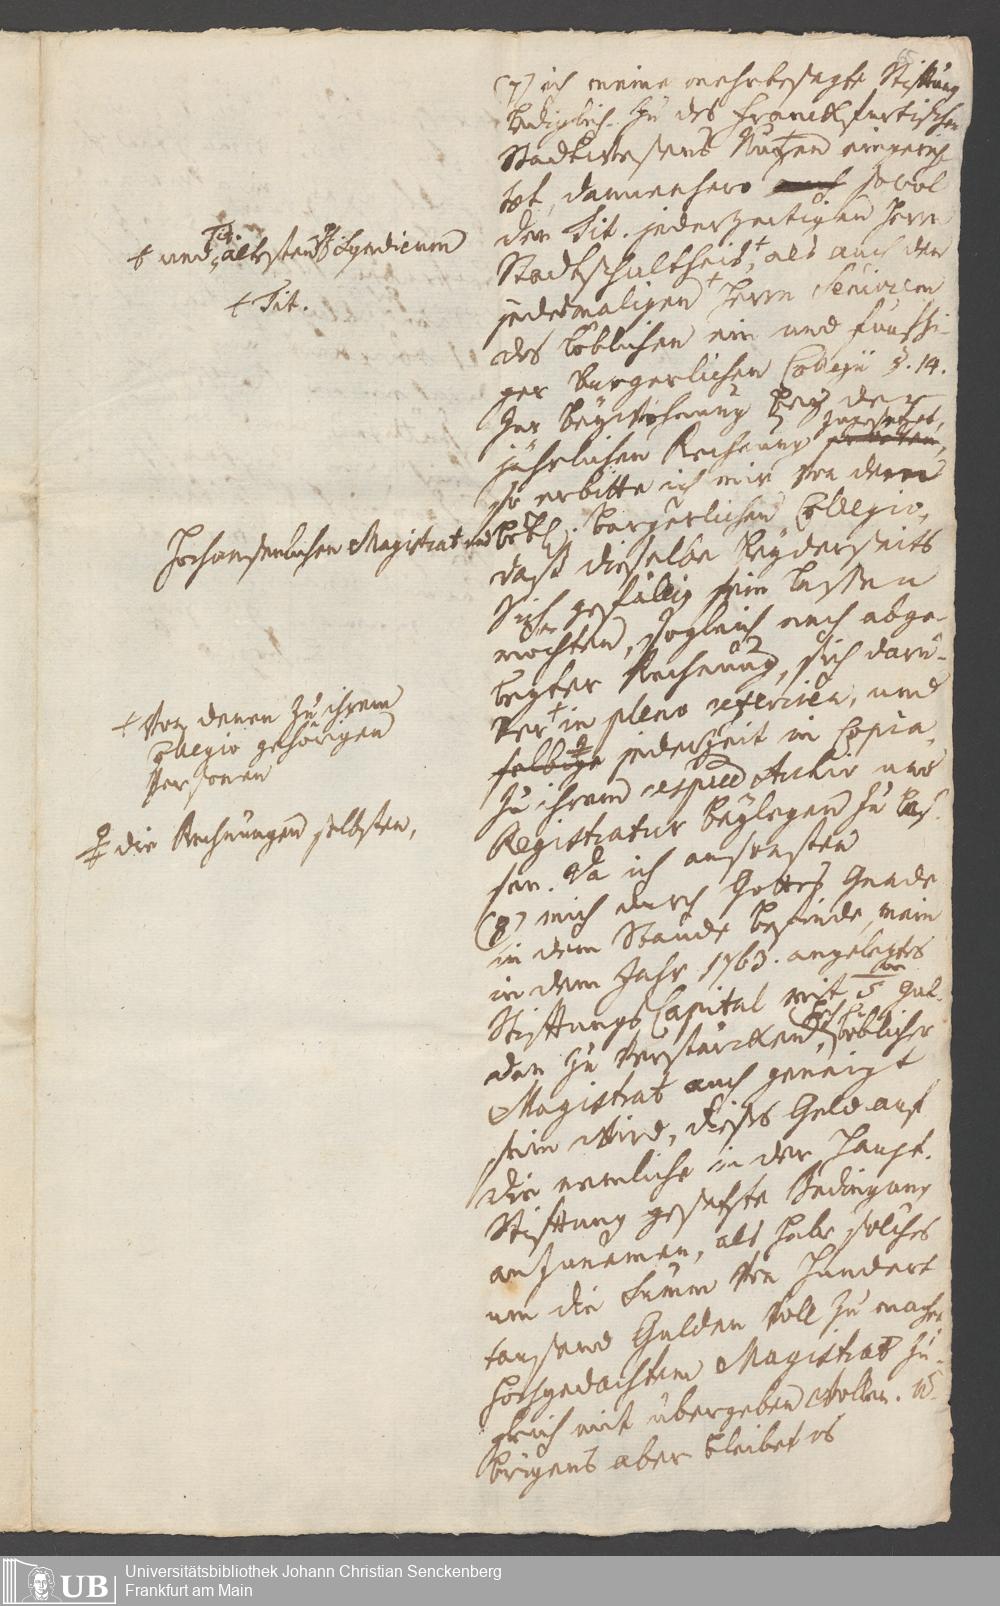 65
(7) ich meine mehrbesagte Stiftung
lediglich zu des Franckfurtischen
Stadtwesens Nutzen eingerich-
tet, dannenhero auch sowol
den Tit. jederzeitigen Herrn
Stadtschultheis, + als auch den
jedesmaligen + Herrn Seniorem
des löblichen ein und funffzi-
ger Burgerlichen Collegii §. 14.
zur Beywohnung bey der
jährlichen Rechnung gebeten,
zugesetzet,
so erbitte ich mir von dem
löbl. burgerlichen Collegio,
daß dieselbe beyderseits
Sich gefällig sein lassen
mochten, sogleich nach abge-
legter Rechnung, sich darü-
ber + in pleno referiren, und
selbige jederzeit in Copia,
zu ihrem respect. Archiv und
Registratur beylegen zu las-
sen. Da ich ansonsten
(8) mich durch Gottes Gnade
in dem Stande befinde, mein
in dem Jahr 1763. angelegtes
Stiftungs Capital mit 5/m Gul-
den zu verstärcken, Hochlöblicher
Magistrat auch geneigt
sein wird, dieses Geld auf
die nemliche in der Haupt-
Stiftung gesetzte Bedingung
anzunemen, als habe solches
um die Summ von Hundert
tausend Gulden voll zu machen
hochgedachtem Magistrat zu-
gleich mit übergeben wollen. Ü-
brigens aber bleibet es
+ und Tit. ältesten H. Syndicum
+ Tit.
Hochansenlichen Magistrat und
+ von denen zu ihrem
Collegio gehörigen
Personen
die Rechnungen selbsten,
UB
Universitätsbibliothek Johann Christian Senckenberg
Frankfurt am Main